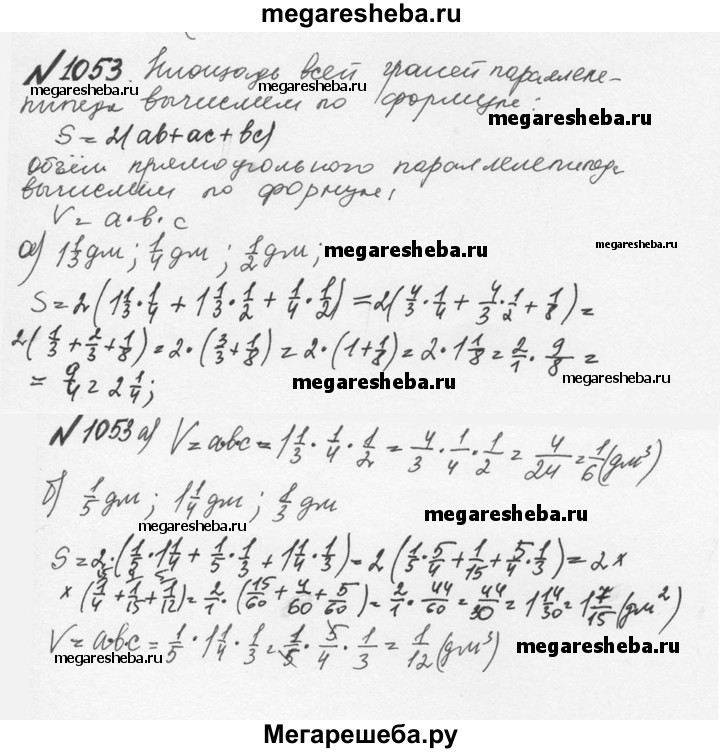 megaresheba.ru
№1053. Площадь всей граней параллеле-
megaresheba.ru
megaresheba.ru
пипеда вычислим по формуле:
megaresheba.ru
S = 2(ab+ac+bc)
Объём прямоугольного параллелепипеда
вычислим по формуле:
V = a·b·c
а) 1 1/3 дм; 1/4 дм; 1/2 дм;
megaresheba.ru
megaresheba.ru
S = 2(1 1/3 · 1/4 + 1 1/3 · 1/2 + 1/4 · 1/2) = 2(4/3 · 1/4 + 4/3 · 1/2 + 1/8) =
2(1/3 + 2/3 + 1/8) = 2·(3/3 + 1/8) = 2·(1 + 1/8) = 2·1 1/8 = 2/1 · 9/8 =
= 9/4 = 2 1/4;
megaresheba.ru
megaresheba.ru
№1053 а) V = abc = 1 1/3 · 1/4 · 1/2 = 4/3 · 1/4 · 1/2 = 4/24 = 1/6 (дм³)
б) 1/5 дм; 1 1/4 дм; 1/3 дм
megaresheba.ru
megaresheba.ru
S = 2·(1/5 · 1 1/4 + 1/5 · 1/3 + 1 1/4 · 1/3) = 2(1/5 · 5/4 + 1/15 + 5/4 · 1/3) = 2 ×
× (1/4 + 1/15 + 5/12) = 2/1 · (15/60 + 4/60 + 5/60) = 2/1 · 44/60 = 44/30 = 1 14/30 = 1 7/15 (дм²)
V = abc = 1/5 · 1 1/4 · 1/3 = 1/5 · 5/4 · 1/3 = 1/12 (дм³)
megaresheba.ru
megaresheba.ru
Мегарешеба.ру